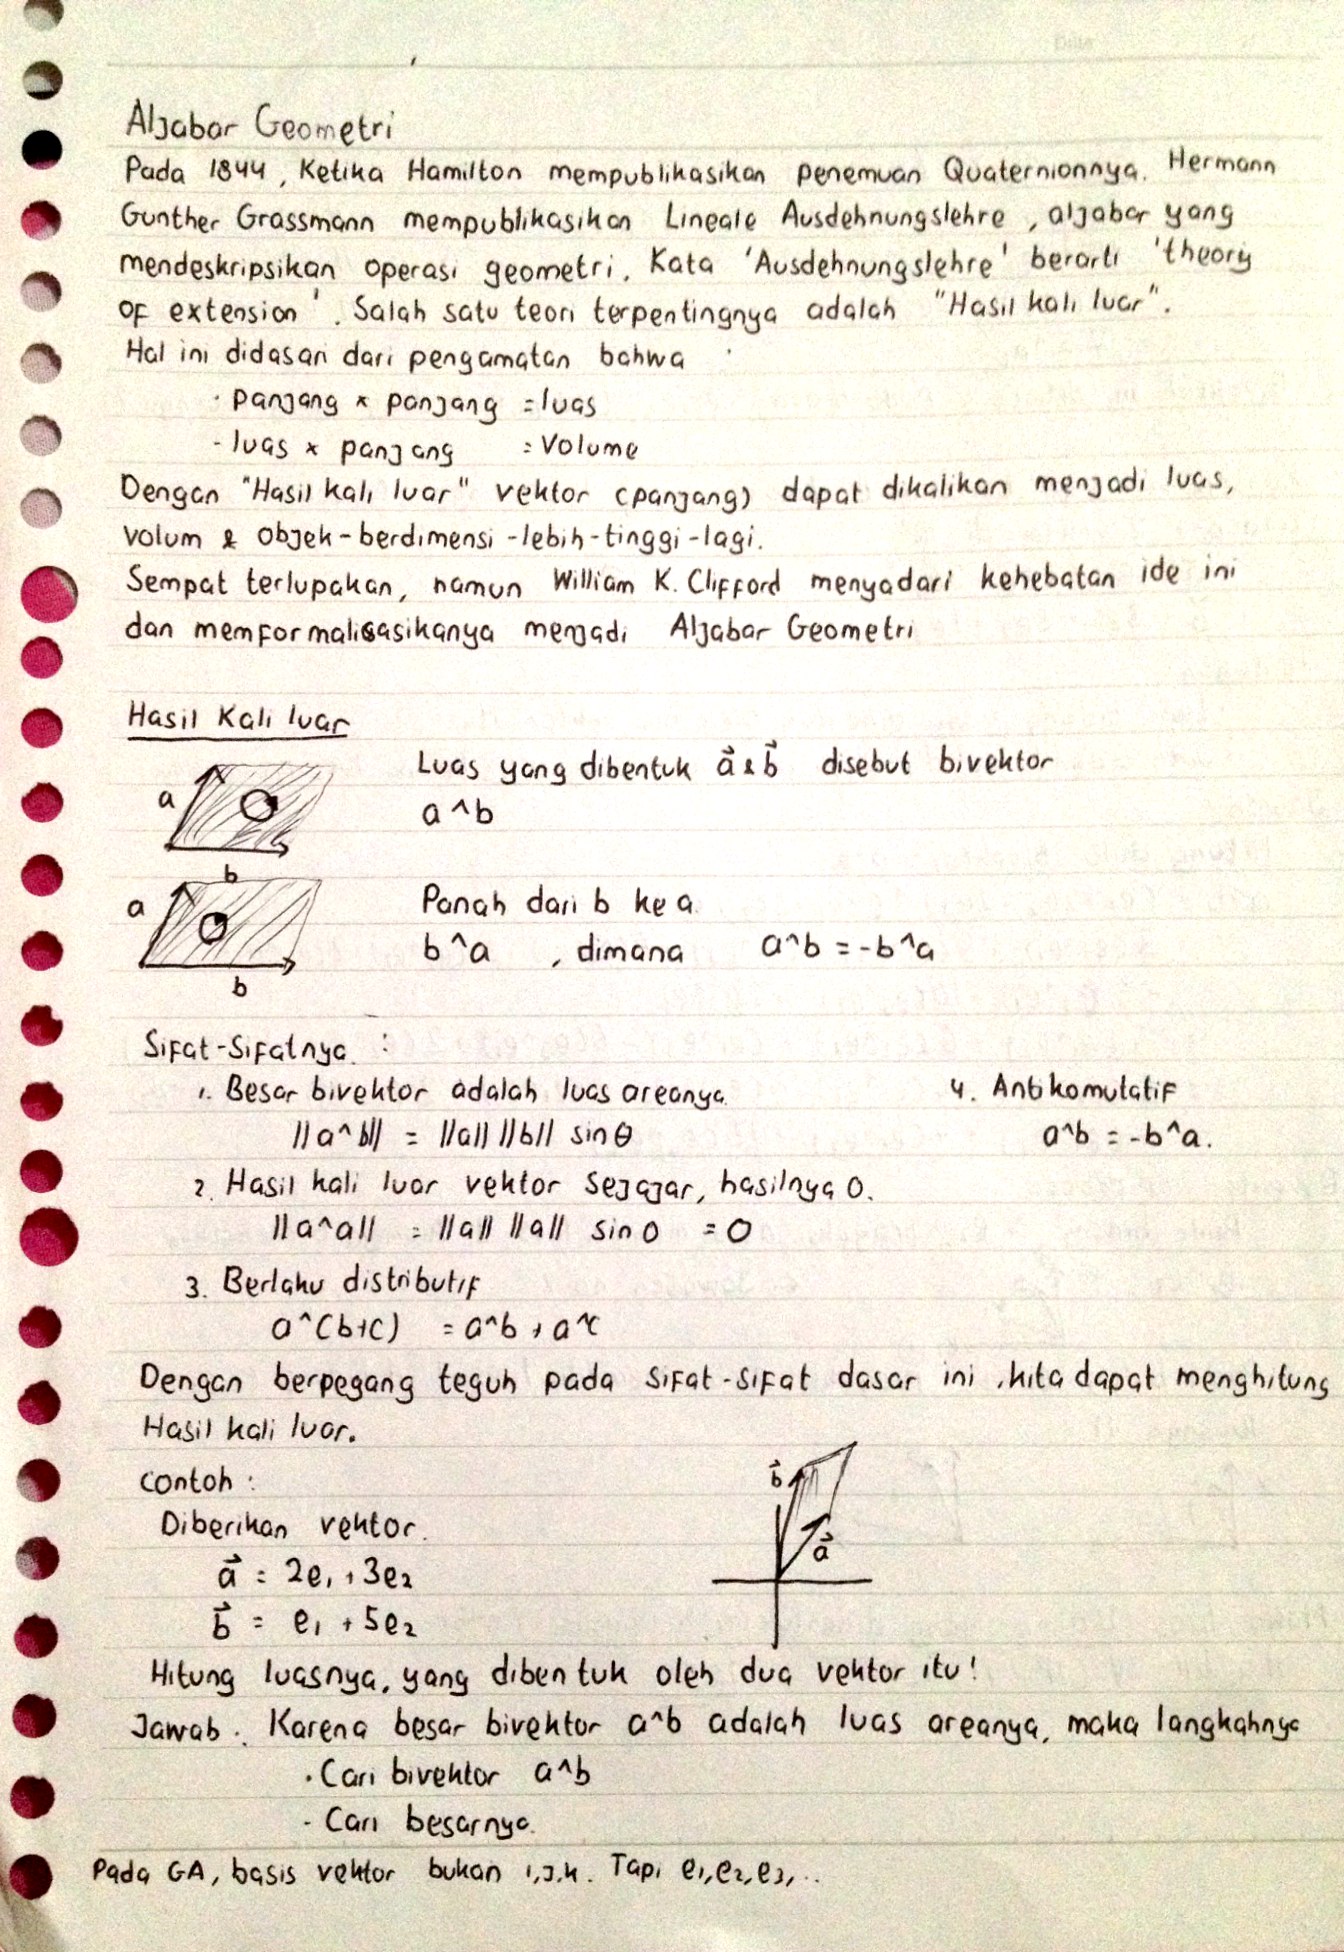 Aljabar Geometri
Pada 1844, Ketika Hamilton mempublikasikan penemuan Quaternionnya. Hermann
Gunther Grassmann mempublikasikan Lineale Ausdehnungslehre, aljabar yang
mendeskripsikan operasi geometri. Kata 'Ausdehnungslehre' berarti 'theory
of extension'. Salah satu teori terpentingnya adalah "Hasil kali luar".
Hal ini didasari dari pengamatan bahwa
· panjang × panjang = luas
- luas × panjang = Volume
Dengan "Hasil kali luar" vektor (panjang) dapat dikalikan menjadi luas,
volum & objek-berdimensi-lebih-tinggi-lagi.
Sempat terlupakan, namun William K. Clifford menyadari kehebatan ide ini
dan memformalisasikanya menjadi Aljabar Geometri
Hasil Kali luar
Luas yang dibentuk a⃗ & b⃗ disebut bivektor
a
a^b
b
Panah dari b ke a
a
b^a , dimana a^b = -b^a
b
Sifat-Sifatnya :
1. Besar bivektor adalah luas areanya
||a^b|| = ||a|| ||b|| sin θ
2. Hasil kali luar vektor sejajar, hasilnya 0.
||a^a|| = ||a|| ||a|| sin 0 = 0
3. Berlaku distributif
a^(b+c) = a^b + a^c
4. Antikomutatif
a^b = -b^a.
Dengan berpegang teguh pada sifat-sifat dasar ini, kita dapat menghitung
Hasil kali luar.
Contoh :
Diberikan vektor.
a⃗ = 2e₁ + 3e₂
b⃗ = e₁ + 5e₂
b⃗
a⃗
Hitung luasnya, yang dibentuk oleh dua vektor itu!
Jawab. Karena besar bivektor a^b adalah luas areanya, maka langkahnya
· Cari bivektor a^b
- Cari besarnya.
Pada GA, basis vektor bukan i,j,k. Tapi e₁,e₂,e₃,..